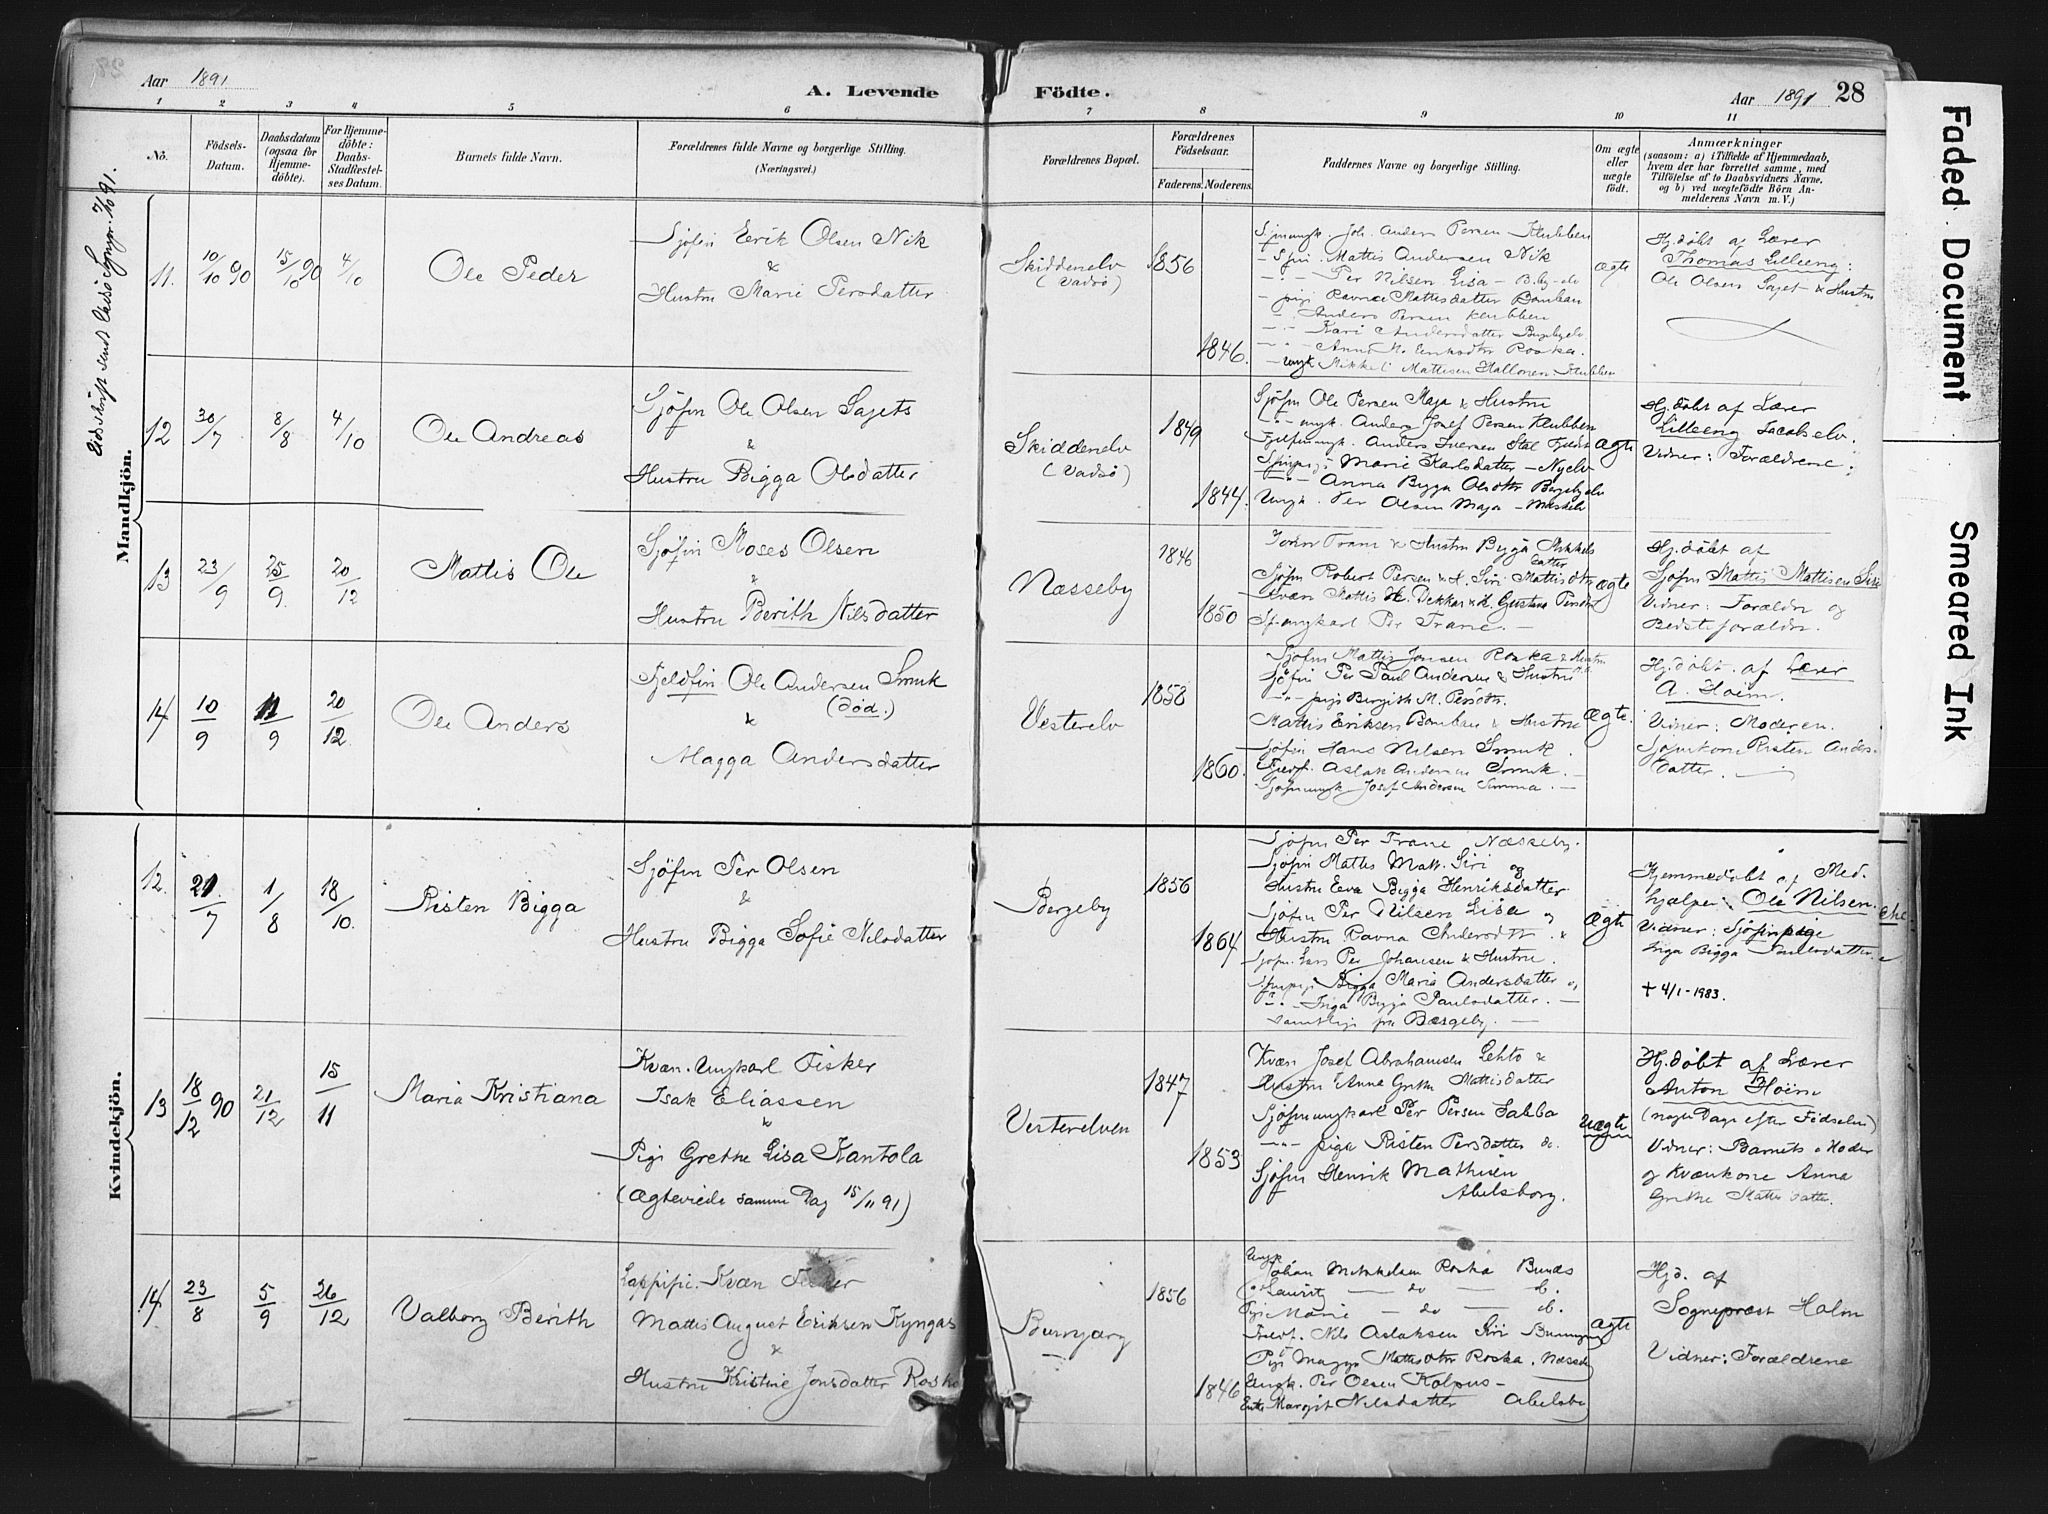 Aar 1891
A. Levende
Födte.
Aar 1891 28
1 2 3 4 5 6 7 8 9 10 11
No.
Födsels-
Datum.
Daabsdatum
(ogsaa for
Hjemme-
döbte).
For Hjemme-
döbte:
Daabs-
Stadfæstel-
ses Datum.
Barnets fulde Navn.
Forældrenes fulde Navne og borgerlige Stilling.
(Næringsvei.)
Forældrenes Bopæl.
Forældrenes
Födselsaar.
Faderens. Moderens.
Faddernes Navne og borgerlige Stilling.
Om ægte
eller
uægte
födt.
Anmærkninger
(saasom: a) i Tilfælde af Hjemmedaab,
hvem der har forrettet samme, med
Tilföielse af to Daabsvidners Navne,
og b) ved uægtefödte Börn An-
melderens Navn m. V.)
Mandkjön.
11. 10/10 90 15/10 90 4/10
Ole Peder
Sjöfin Erik Olsen Nik
&
Hustru Marie Persdatter
Skiddenelv
(Vadsö)
1856
1846.
Joh. Anders Persen Klubben
Mattis Andersen Nik
Per Nilsen Lisa
Ravna Mattisdatter Bonkau
Anders Persen Klubben
Kari Andersdatter
Mikkel Mattisen Hallonen
Ægte
Hj. döbt af Lærer
Thomas Lilleeng:
Ole Olsen Sajet & Hustru
12 30/7 8/8 4/10
Ole Andreas
Sjöfin Ole Olsen Sajets
&
Hustru Bigga Olsdatter
Skiddenelv
(Vadsö)
1849
1844.
Sjöfin Ole Persen Maja & Hustru
ungk. Anders Josef Persen Klubben
Anders Iversen
Marie Karlsdatter – Nyelv
Anna Bigga Olsdtr
Ungk. Per Olsen Maja – Meskelv
Ægte
Hj. döbt af Lærer
Lilleeng Jacobselv.
Vidner: Forældrene:
13 23/9 25/9. 20/12
Mattis Ole
Sjöfin Moses Olsen
&
Hustru Berith Nilsdatter
Næsseby
1846
1850
& Hustru Bigga Mikkels
datter
Sjöfin Robert Persen & H. Siri Mattisdtr
Kvæn Mattis
Per Trane. –
Ægte
Hj. döbt af
Sjöfin Mattis Mattisen Siri
Vidner: Foræld. og
Bedsteforæld.
14 10/9 11/9 20/12.
Ole Anders
Fjeldfin Ole Andersen Smuk
(död.)
&
Magga Andersdatter
Vesterelv
1858
1860.
Sjöfin Mattis Jonsen Roska & Hustru
Sjöfin Per Paul Andersen & Hustru
pige Bergith M. Persdtr.
Mattis Eriksen Bonkau & Hustru
Sjöfin Hans Nilsen Smuk.
Fjeldf. Aslak Andersen Smuk. –
Josef Andersen Simma. –
Ægte.
Hj. döbt af Lærer
A. Hoëm.
Vidner: Moderen.
Sjöfinkone Risten Anders-
datter.
Kvindekjön.
12. 21/7 1/8 18/10.
Risten Bigga
Sjöfin Per Olsen
&
Hustru Bigga Sofie Nilsdatter
Bergeby
1856
1864
Sjöfin Per Trane Næsseby.
Sjöfin Mattis Matt. Siri og
Hustru Eeva Bigga Henriksdatter
Sjöfin Per Nilsen Lisa og
Hustru Ravna Andersdtr &
Sjöfin Lars Per Johansen & Hustru.
Bigga Maria Andersdatter og
Inga Bigga Paulsdatter. –
samtlige fra Bergeby. –
Ægte
Hjemmedöbt af Med-
hjælper: Ole Nilsen.
Vidner: Sjöfinpige
Inga Bigga Paulsdatter.
† 4/1-1983.
13 18/12 90 21/12 15/11
Maria Kristiana
Kvæn. Ungkarl Fisker
Isak Eliassen
&
Pige Grethe Lisa Kantola
(Ægteviede samme Dag 15/11 91)
Vesterelven
1847
1853
Kvæn Josef Abrahamsen Lehto &
Hustru Anna Grethe Mattisdatter
Sjöfinungkarl Per Persen Sabba
pige Risten Persdatter do.
Sjöfin Henrik Mathisen
Abelsborg.
Uægte
Hj. döbt af Lærer
Anton Hoëm
(nogle Dage efter Födselen)
Vidner: Barnets Moder
og Kvænkone Anna
Grethe Mattisdatter.
14 23/8 5/9 26/12
Valborg Berith
Kvæn Fisker
Mattis August Eriksen Kyngäs
&
Hustru Kristine Jonsdatter Roska
Bunjarg
1856
1846
Ungk
Johan Mikkelsen Roska Bunæs
Laurits — do — do.
Pige Marie — do — do.
Fjeldf. Nils Aslaksen Siri
Pige Magga Mattisdtr Roska. Næsseb
Ungk. Per Olsen Kolpus –
Enke Margit Nilsdatter Abelsb
Ægte
Hjd. af
Sognepræst Holm
Vidner: Forældrene
Faded Document
Smeared Ink